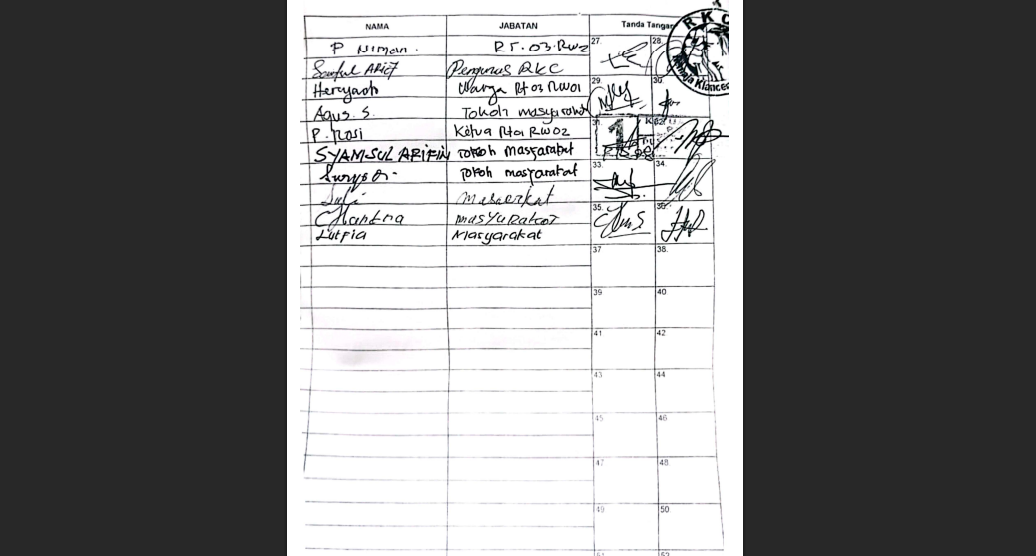 NAMA JABATAN Tanda Tangan
P Niman. RT. 03. RW2 27. 28.
Saiful ARIEF Pengurus RKC
Heryanto Warga Rt 03 RW01 29. 30.
Agus. S. Tokoh masyarakat
P. Rosi Ketua Rt01 RW02
SYAMSUL ARIFIN Tokoh masyarakat
Suryo tokoh masyarakat 33. 34.
CHandra MASYaRakat 35. 36.
Lutfia Masyarakat
37 38.
39 40
41 42
43 44
45 46
47 48
49 50
RKC